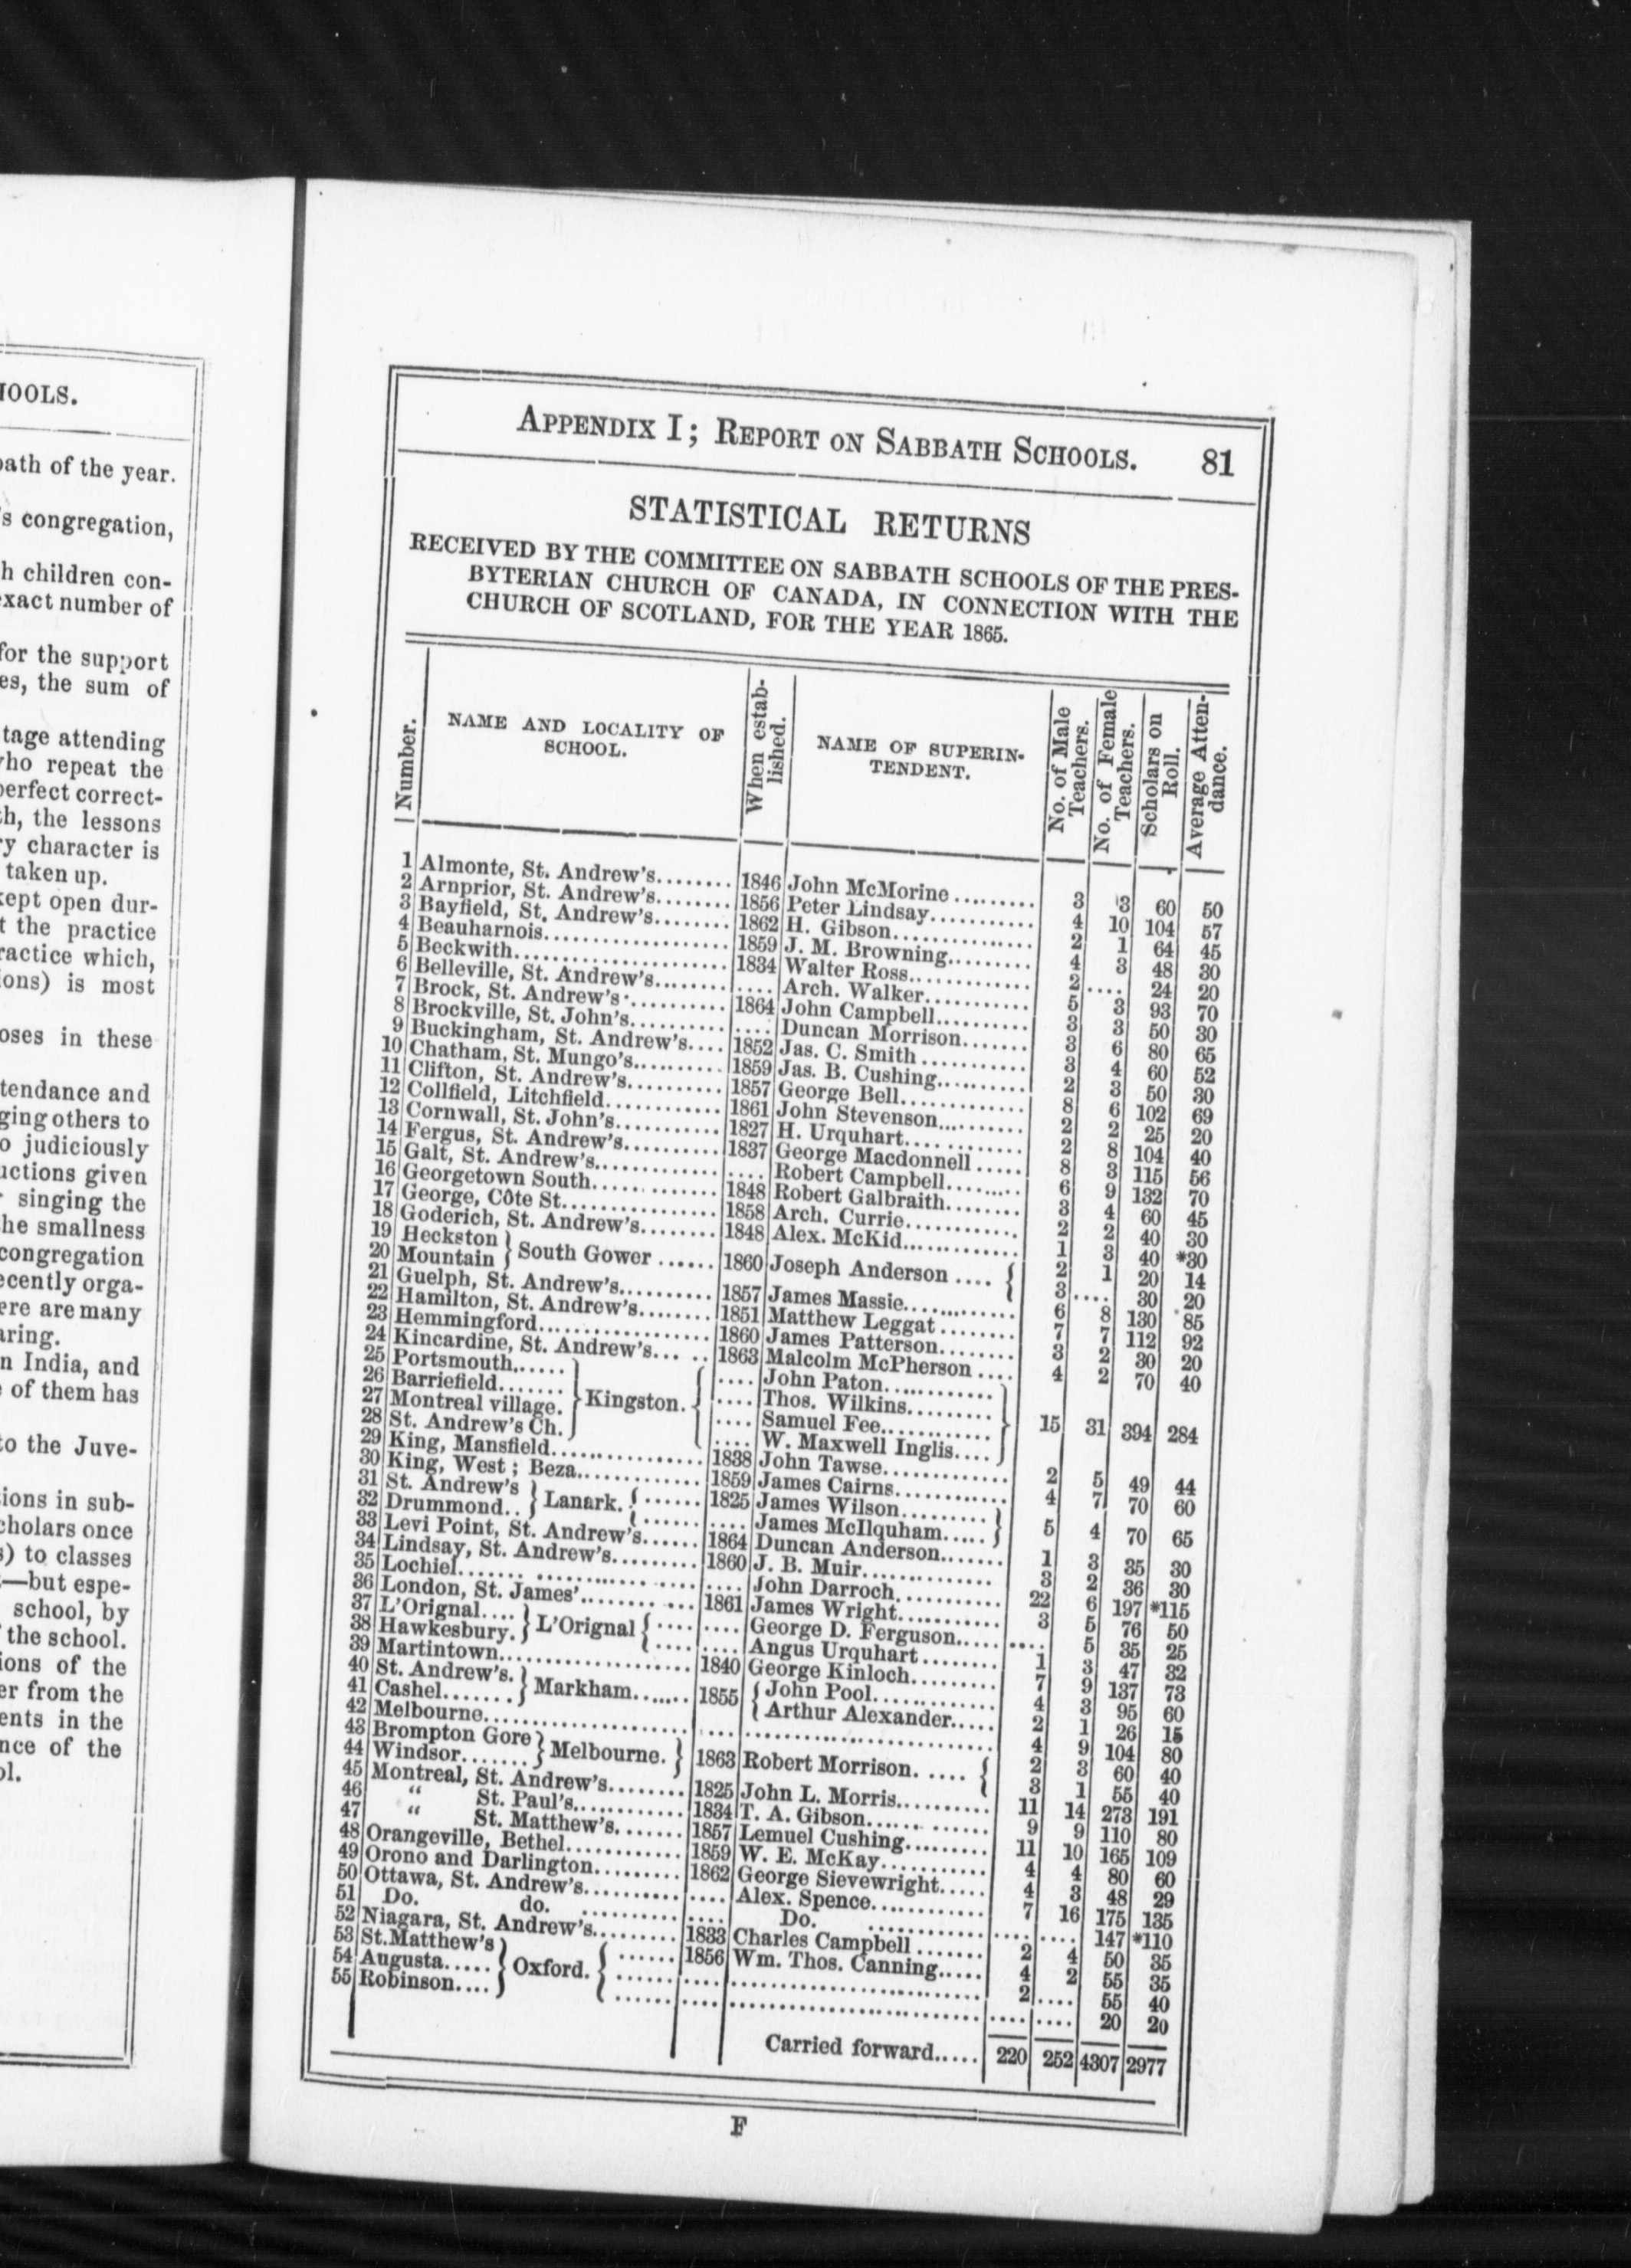 HOOLS.
bath of the year.
's congregation,
h children con-
exact number of
for the support
es, the sum of
tage attending
who repeat the
perfect correct-
th, the lessons
ry character is
taken up.
kept open dur-
t the practice
ractice which,
ions) is most
oses in these
tendance and
ging others to
o judiciously
uctions given
r singing the
he smallness
congregation
ecently orga-
ere are many
aring.
n India, and
e of them has
to the Juve-
ions in sub-
cholars once
s) to classes
:—but espe-
school, by
the school.
ions of the
er from the
ents in the
nce of the
ol.
APPENDIX I; REPORT ON SABBATH SCHOOLS. 81
STATISTICAL RETURNS
RECEIVED BY THE COMMITTEE ON SABBATH SCHOOLS OF THE PRES-
BYTERIAN CHURCH OF CANADA, IN CONNECTION WITH THE
CHURCH OF SCOTLAND, FOR THE YEAR 1865.
Number. NAME AND LOCALITY OF SCHOOL. When estab-lished. NAME OF SUPERIN-TENDENT. No. of Male Teachers. No. of Female Teachers. Scholars on Roll. Average Atten-dance.
1 Almonte, St. Andrew's........ 1846 John McMorine ......... 3 3 60 50
2 Arnprior, St. Andrew's........ 1856 Peter Lindsay........... 4 10 104 57
3 Bayfield, St. Andrew's........ 1862 H. Gibson............... 2 1 64 45
4 Beauharnois.................. 1859 J. M. Browning......... 4 3 48 30
5 Beckwith..................... 1834 Walter Ross............. 2 .... 24 20
6 Belleville, St. Andrew's........ .... Arch. Walker........... 5 3 93 70
7 Brock, St. Andrew's.......... 1864 John Campbell.......... 3 3 50 30
8 Brockville, St. John's.......... .... Duncan Morrison....... 3 6 80 65
9 Buckingham, St. Andrew's.... 1852 Jas. C. Smith ........... 3 4 60 52
10 Chatham, St. Mungo's.......... 1859 Jas. B. Cushing.......... 2 3 50 30
11 Clifton, St. Andrew's.......... 1857 George Bell............. 8 6 102 69
12 Collfield, Litchfield............ 1861 John Stevenson.......... 2 2 25 20
13 Cornwall, St. John's........... 1827 H. Urquhart............ 2 8 104 40
14 Fergus, St. Andrew's.......... 1837 George Macdonnell ..... 8 3 115 56
15 Galt, St. Andrew's............. .... Robert Campbell........ 6 9 132 70
16 Georgetown South............. 1848 Robert Galbraith........ 3 4 60 45
17 George, Côte St................ 1858 Arch. Currie............ 2 2 40 30
18 Goderich, St. Andrew's........ 1848 Alex. McKid............. 1 3 40 *30
19 Heckston } South Gower ...... 1860 Joseph Anderson .... { 2 1 20 14
20 Mountain } 3 .... 30 20
21 Guelph, St. Andrew's.......... 1857 James Massie........... 6 8 130 85
22 Hamilton, St. Andrew's........ 1851 Matthew Leggat ........ 7 7 112 92
23 Hemmingford.................. 1860 James Patterson........ 3 2 30 20
24 Kincardine, St. Andrew's... .. 1863 Malcolm McPherson .... 4 2 70 40
25 Portsmouth...... } Kingston. { .... John Paton............ }
26 Barriefield....... .... Thos. Wilkins.........
27 Montreal village. .... Samuel Fee............ 15 31 394 284
28 St. Andrew's Ch. .... W. Maxwell Inglis....
29 King, Mansfield............... 1838 John Tawse............. 2 5 49 44
30 King, West; Beza............. 1859 James Cairns........... 4 7 70 60
31 St. Andrew's } Lanark. { ...... 1825 James Wilson......... }
32 Drummond.. } { ...... .... James McIlquham..... } 5 4 70 65
33 Levi Point, St. Andrew's...... 1864 Duncan Anderson....... 1 3 35 30
34 Lindsay, St. Andrew's......... 1860 J. B. Muir.............. 3 2 36 30
35 Lochiel....... .............. .... John Darroch........... 22 6 197 *115
36 London, St. James'............ 1861 James Wright........... 3 5 76 50
37 L'Orignal.... } L'Orignal { .... .... George D. Ferguson..... .... 5 35 25
38 Hawkesbury. } { .... .... Angus Urquhart........ 1 3 47 32
39 Martintown................... 1840 George Kinloch......... 7 9 137 73
40 St. Andrew's. } Markham...... 1855 { John Pool............. 4 3 95 60
41 Cashel....... } { Arthur Alexander..... 2 1 26 15
42 Melbourne.................... .... ........................ 4 9 104 80
43 Brompton Gore } Melbourne. } 1863 Robert Morrison. ..... { 2 3 60 40
44 Windsor....... } 3 1 55 40
45 Montreal, St. Andrew's........ 1825 John L. Morris.......... 11 14 273 191
46 “ St. Paul's............ 1834 T. A. Gibson............ 9 9 110 80
47 “ St. Matthew's....... 1857 Lemuel Cushing......... 11 10 165 109
48 Orangeville, Bethel............ 1859 W. E. McKay........... 4 4 80 60
49 Orono and Darlington......... 1862 George Sievewright..... 4 3 48 29
50 Ottawa, St. Andrew's.......... .... Alex. Spence............ 7 16 175 135
51 Do. do. .......... .... Do. ........... .... .... 147 *110
52 Niagara, St. Andrew's......... 1833 Charles Campbell ....... 2 4 50 35
53 St.Matthew's } Oxford. { ...... 1856 Wm. Thos. Canning..... 4 2 55 35
54 Augusta..... ...... .... ........................ 2 .... 55 40
55 Robinson.... ...... .... ........................ .... .... 20 20
Carried forward..... 220 252 4307 2977
F